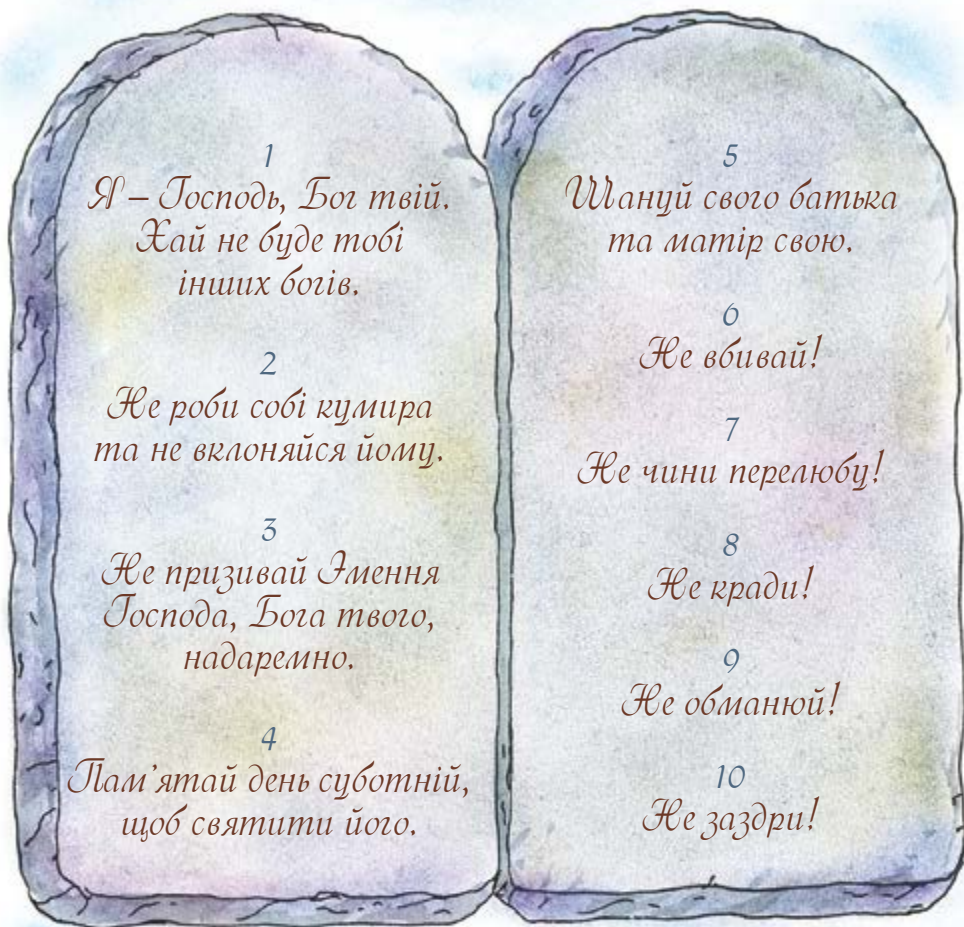 1
Я – Господь, Бог твій.
Хай не буде тобі
інших богів.
2
Не роби собі кумира
та не вклоняйся йому.
3
Не призивай Ймення
Господа, Бога твого,
надаремно.
4
Пам'ятай день суботній,
щоб святити його.
5
Шануй свого батька
та матір свою.
6
Не вбивай!
7
Не чини перелюбу!
8
Не кради!
9
Не обманюй!
10
Не заздри!